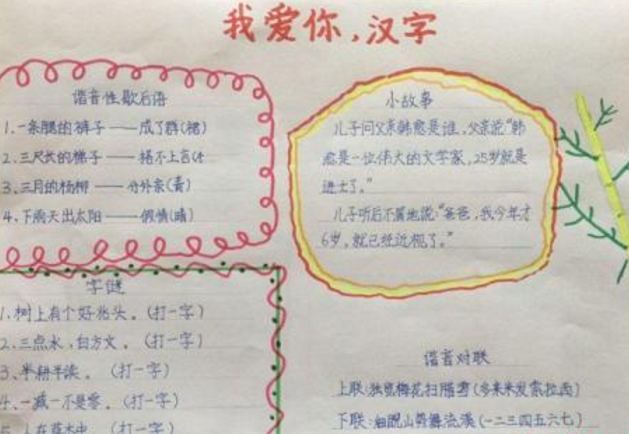 我爱你,汉字
谐音性歇后语
1、一条腿的裤子——成了群(裙)
2、三尺长的梯子——搭不上言(
3、三月的杨柳——分外亲(青)
4、下雨天出太阳——假情(晴)
小故事
儿子问父亲韩愈是谁,父亲说“韩
愈是一位伟大的文学家,25岁就是
进士了。”
儿子听后不屑地说:“爸爸,我今年才
6岁,就已经近视了。”
字谜
1、树上有个好兆头。(打一字)
2、三点水,白方文。(打一字)
3、半耕半读。(打一字)
4、一减一不是零。(打一字)
5、人在草木中。(打一字)
谐音对联
上联:独览梅花扫腊雪(多来米发索拉西)
下联:细睨山势舞流溪(一二三四五六七)